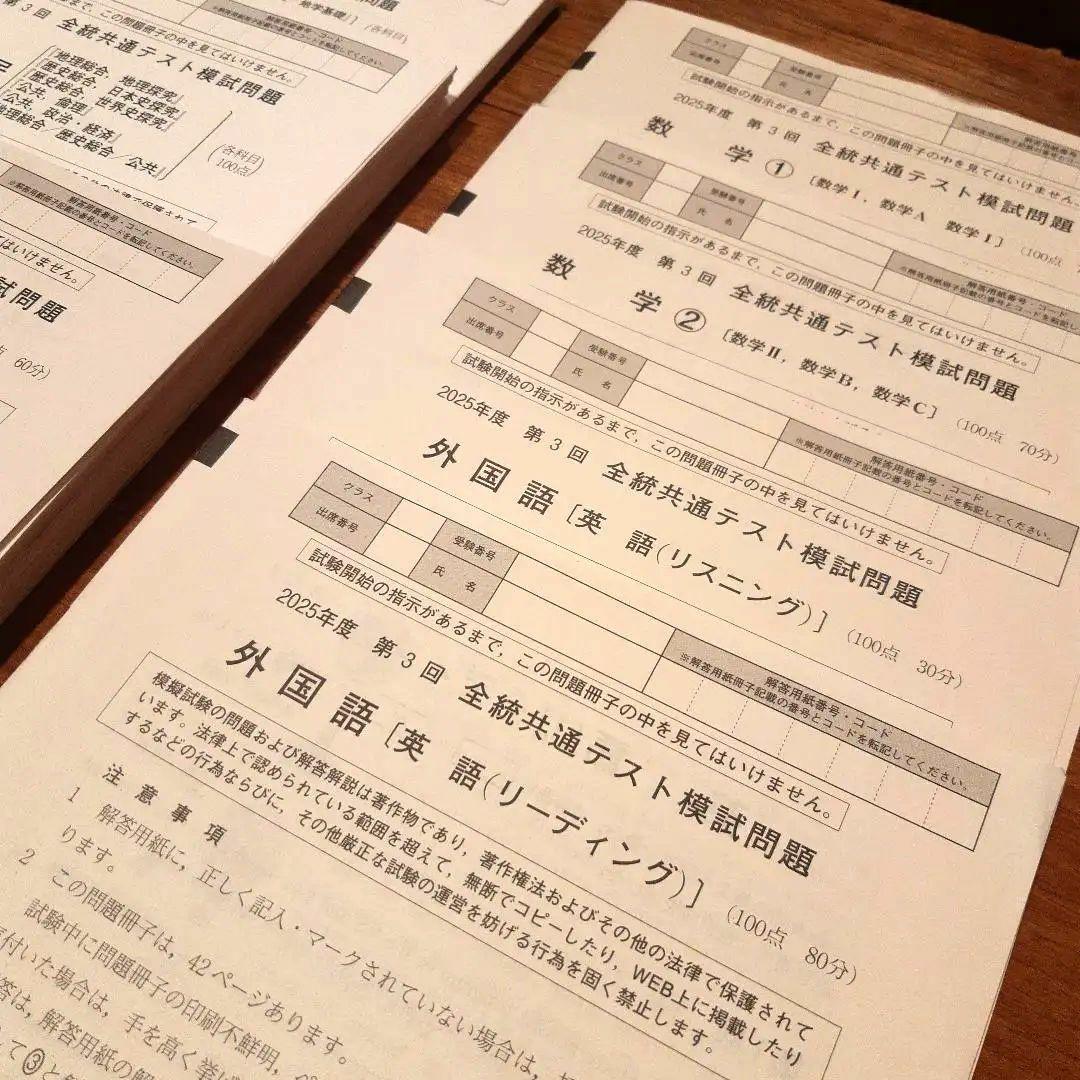 地学基礎』】(各科目
解答用紙番号・コード
この問題冊子の中を見てはいけません。
第3回 全統共通テスト模試問題
『地理総合, 地理探究』
『歴史総合, 日本史探究』
『歴史総合, 世界史探究』
『公共, 倫理』
『公共, 政治・経済』
『地理総合/歴史総合/公共』
(各科目
100点)
解答用紙番号・コード
※解答用紙冊子記載の番号とコードを転記してください。
はいけません。
試問題
60分)
クラス
出席番号
受験番号
氏 名
試験開始の指示があるまで,この問題冊子の中を見てはいけません。
2025年度 第3回 全統共通テスト模試問題
数 学 ① 〔数学I, 数学A 数学I〕 (100点
クラス
出席番号
受験番号
氏 名
解答用紙番号・コード
※解答用紙冊子記載の番号とコードを転記
試験開始の指示があるまで,この問題冊子の中を見てはいけません。
2025年度 第3回 全統共通テスト模試問題
数 学 ② 〔数学II, 数学B, 数学C〕 (100点 70分)
クラス
出席番号
受験番号
氏 名
解答用紙番号・コード
※解答用紙冊子記載の番号とコードを転記してください。
試験開始の指示があるまで,この問題冊子の中を見てはいけません。
2025年度 第3回 全統共通テスト模試問題
外 国 語 〔英 語(リスニング)〕 (100点 30分)
クラス
出席番号
受験番号
氏 名
解答用紙番号・コード
※解答用紙冊子記載の番号とコードを転記してください。
試験開始の指示があるまで,この問題冊子の中を見てはいけません。
2025年度 第3回 全統共通テスト模試問題
外 国 語 〔英 語(リーディング)〕 (100点 80分)
模擬試験の問題および解答解説は著作物であり,著作権法およびその他の法律で保護されて
います。法律上で認められている範囲を超えて,無断でコピーしたり,WEB上に掲載したり
するなどの行為ならびに,その他厳正な試験の運営を妨げる行為を固く禁止します。
注 意 事 項
1 解答用紙に,正しく記入・マークされていない場合は,
ります。
2 この問題冊子は,42ページあります。
試験中に問題冊子の印刷不鮮明,ペ
気付いた場合は,手を高く挙げ
答は,解答用紙の解
て③と